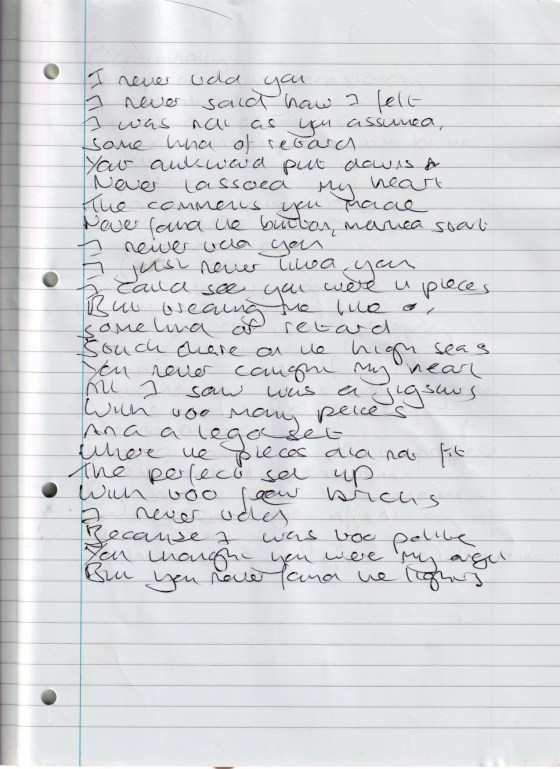 I never told you
I never said how I felt
I was not as you assumed,
some kind of retard
Your awkward put downs
Never lassoed my heart
The comments you made
Never found the button, marked start
I never told you
I just never liked you
I could see you were in pieces
But treating me like a,
some kind of retard
Stuck there on the high seas
You never caught my heart
All I saw was a jigsaws
With too many peices
And a lego set
Where the pieces did not fit
The perfect set up
With too few bricks
I never told
Because I was too polite
You thought you were my angel
But you never found the lights